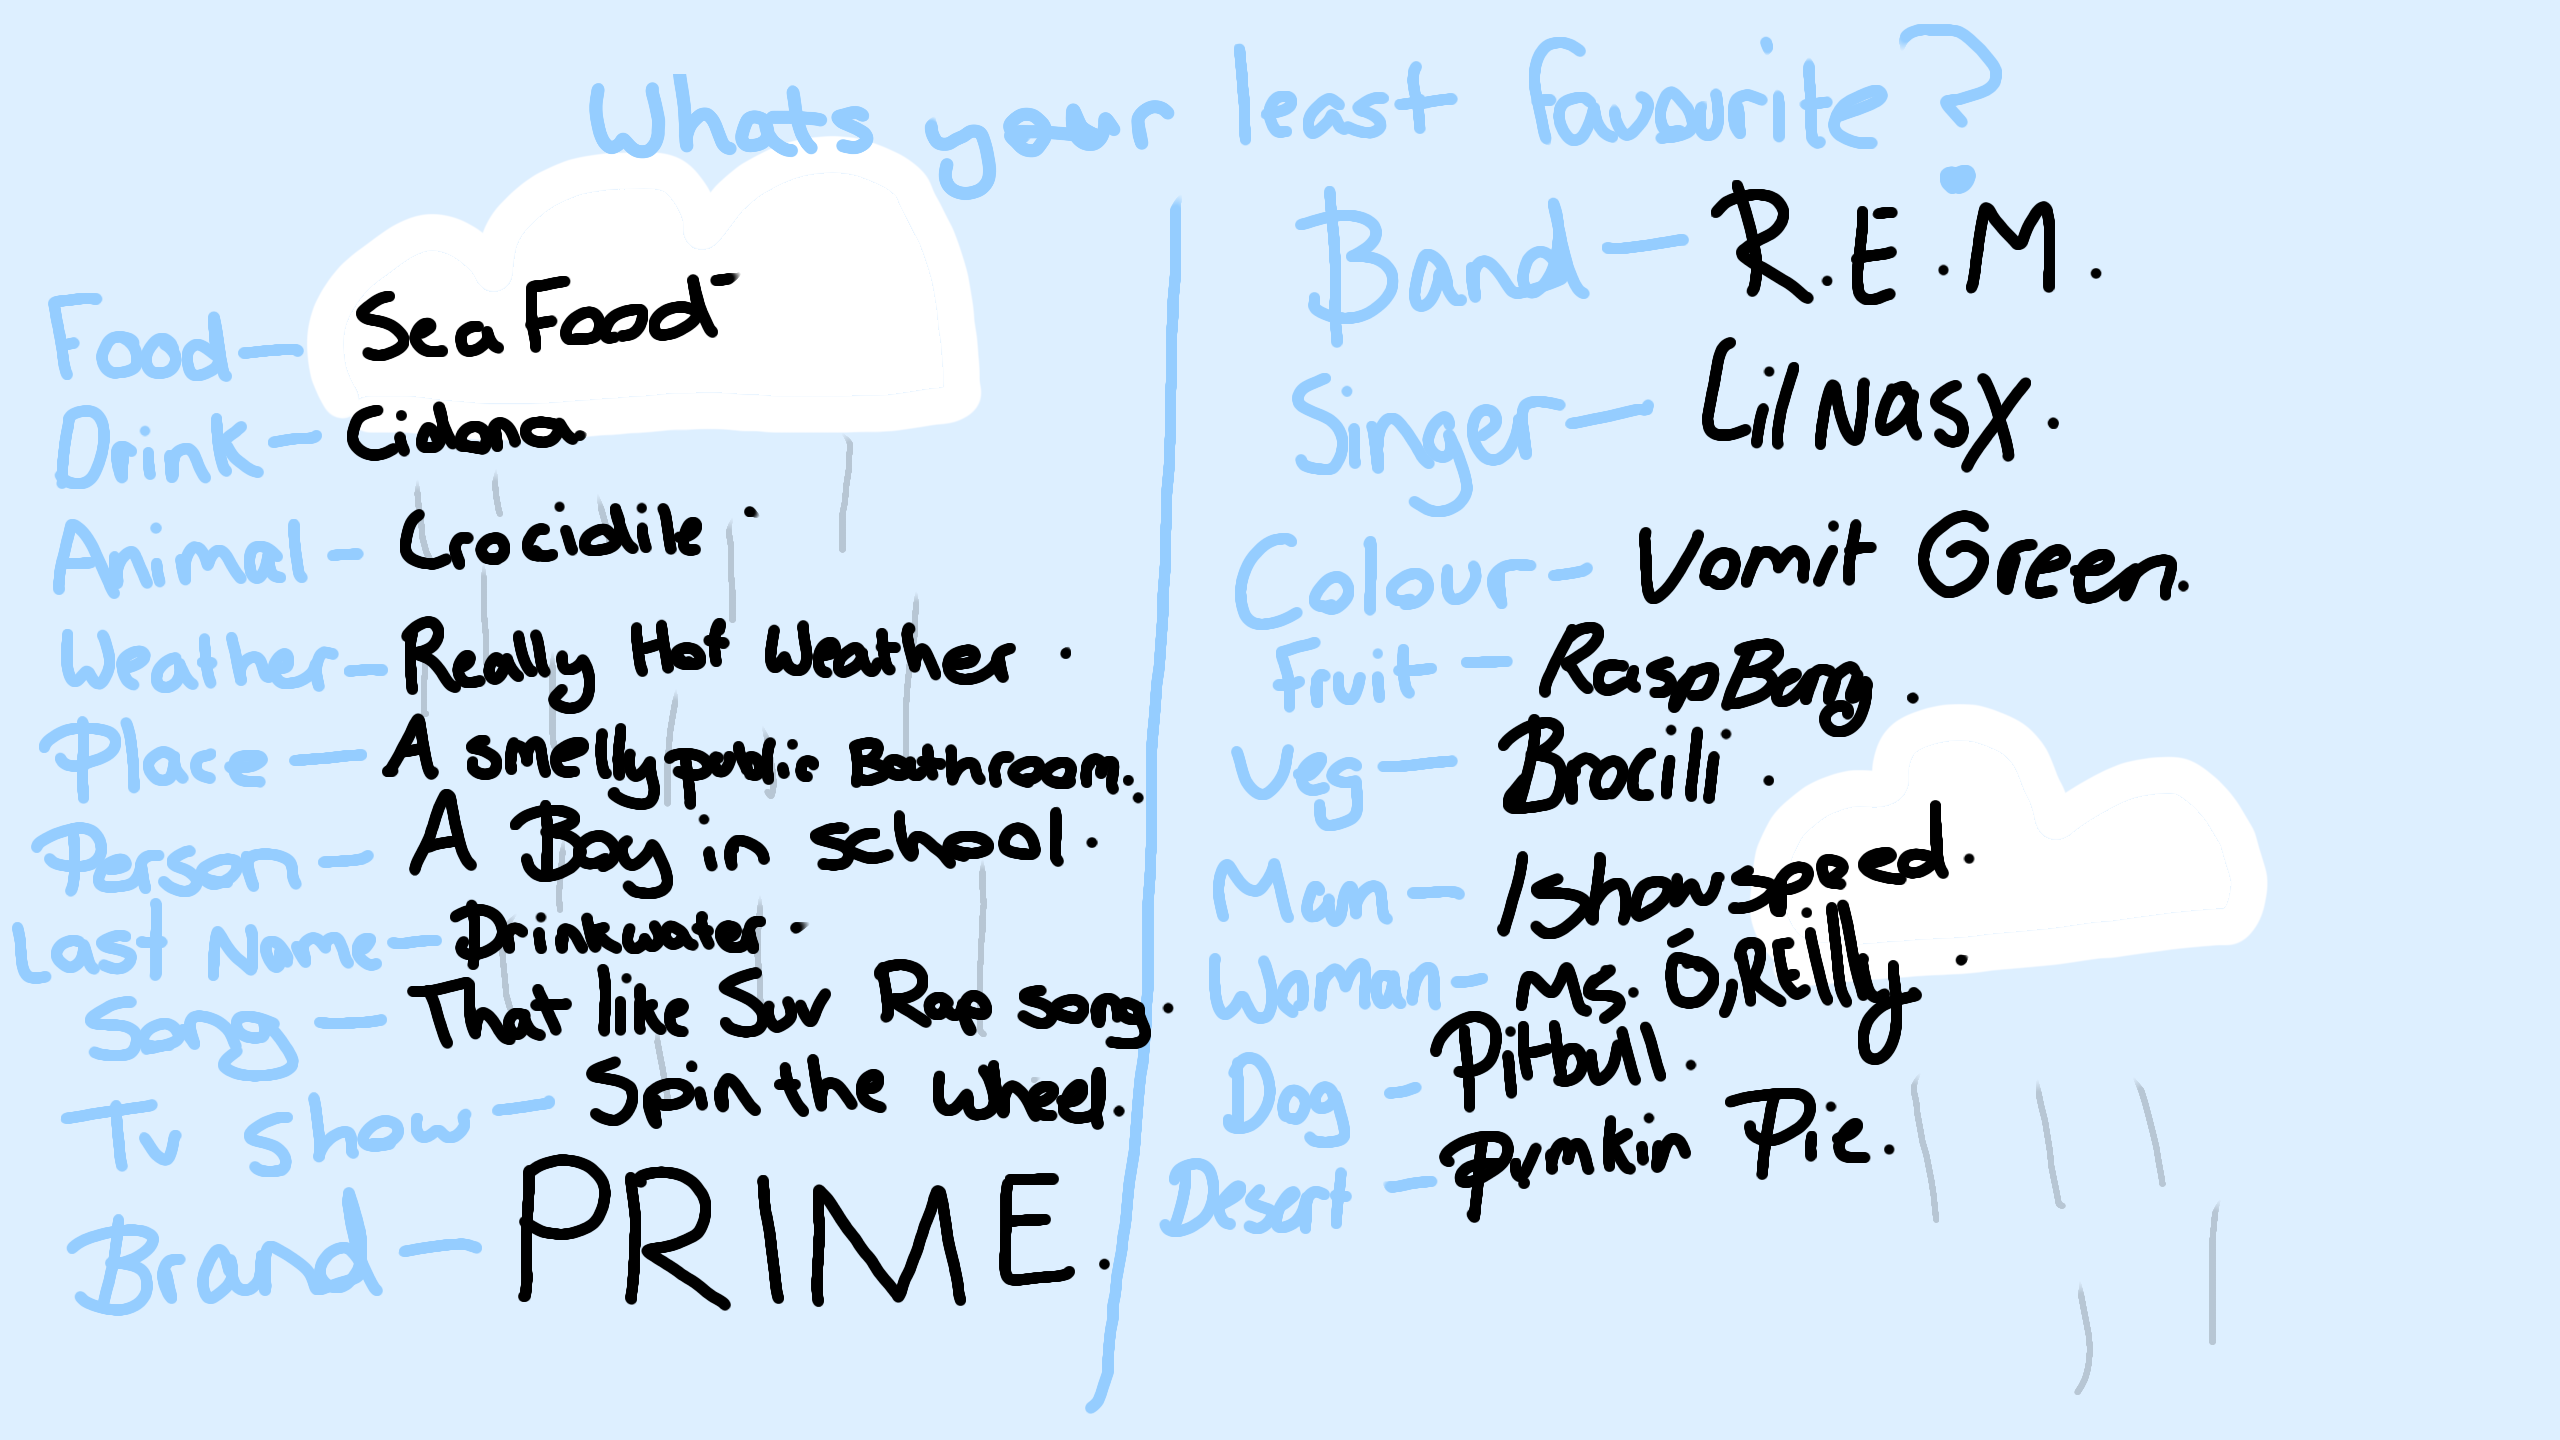 Whats your least favourite?
Food— SeaFood
Drink— Cidona
Animal— Crocidile.
Weather— Really Hot Weather.
Place— A smelly public Bathroom.
Person— A Boy in school.
Last Name— Drinkwater.
Song— That like Suv Rap song.
Tv show— Spin the wheel.
Brand— PRIME.
Band— R.E.M.
Singer— Lil Nas X.
Colour— Vomit Green.
Fruit— RaspBerry.
Veg— Brocili.
Man— Ishowspeed.
Woman— Ms. Ó,REIlly.
Dog— Pitbull.
Desert— Pumkin Pie.